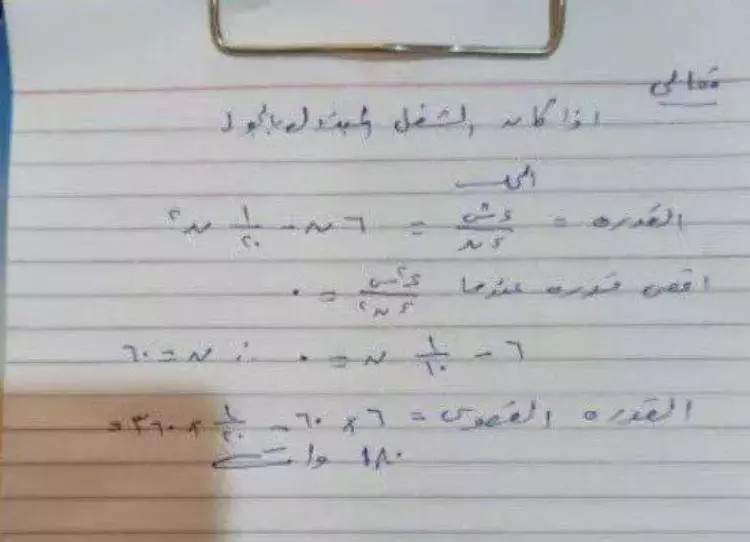 مثالى
اذا كان الشغل المبذول بالجول
الحل
القدره = ءش/ءن = ٦ن - ١/٢٠ ن²
اقصى قدره عندما ء²ش/ءن² = ٠
٦ - ١/١٠ ن = ٠ ∴ ن = ٦٠
القدره القصوى = ٦ × ٦٠ - ١/٢٠ × ٣٦٠٠ =
١٨٠ وات